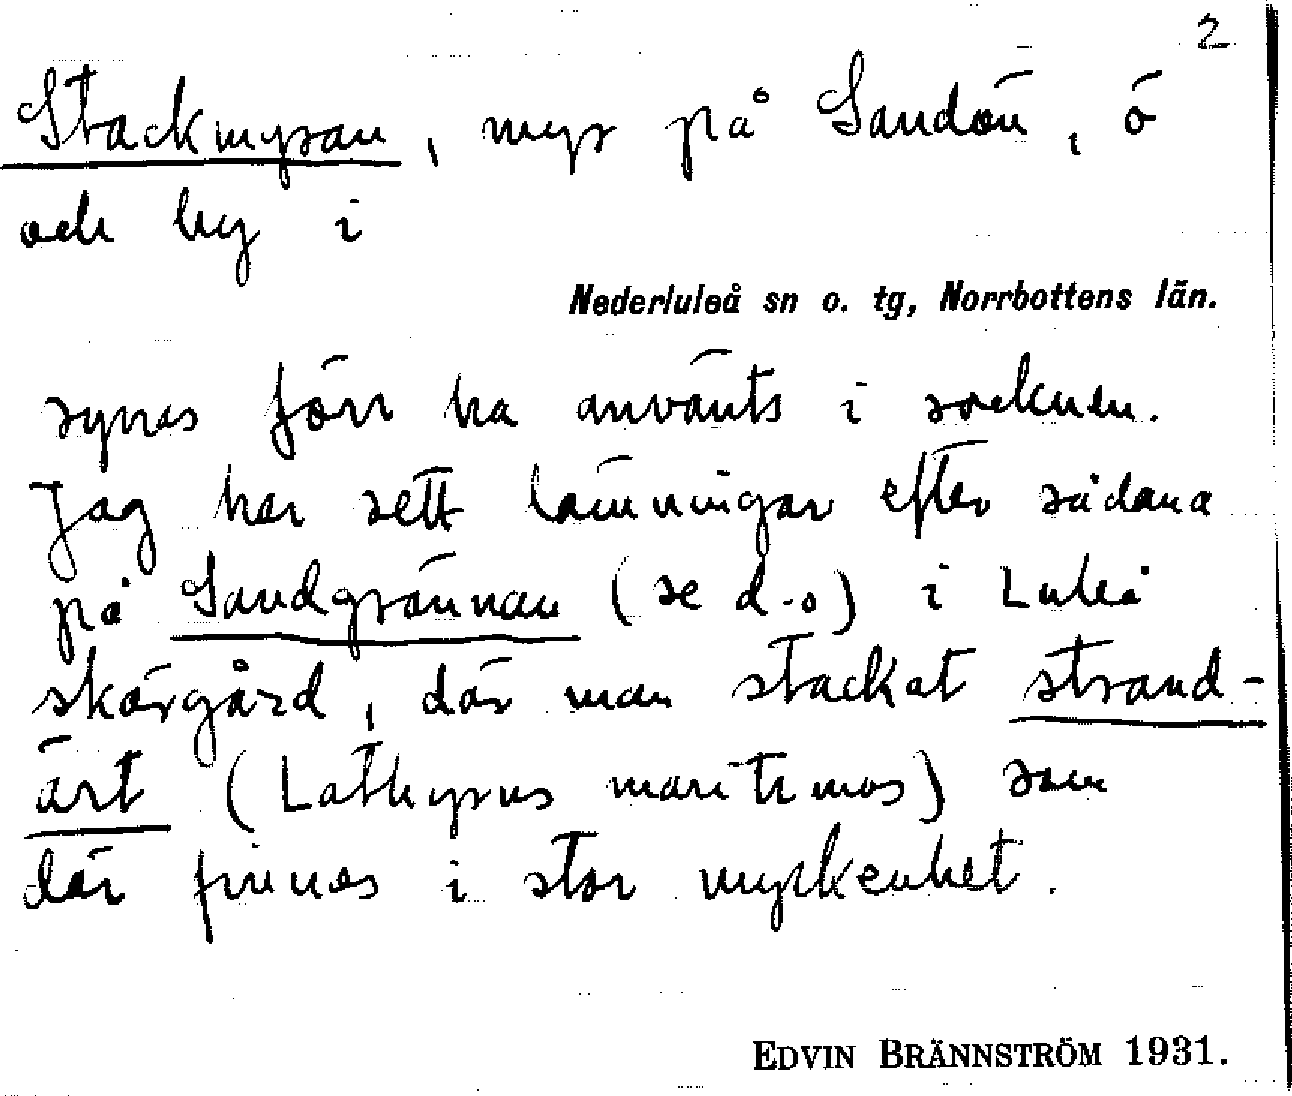 2
Stackmyran, myr på Sandön, ö
och by i
Nederluleå sn o. tg, Norrbottens län.
synes förr ha använts i socknen.
Jag har sett lämningar efter sådana
på Sandgrönnan (se d.o) i Luleå
skärgård, där man stackat strand-
ärt (Lathyrus maritimus) som
där finnes i stor myckenhet.
EDVIN BRÄNNSTRÖM 1931.